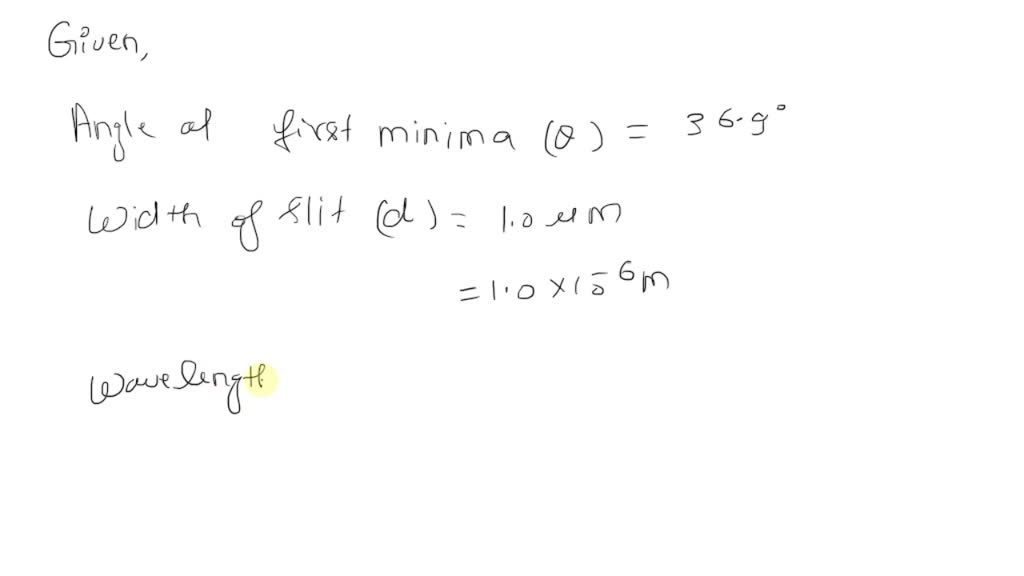 Given,
Angle at first minima (θ) = 36.9°
Width of slit (d) = 1.0 μm
= 1.0 × 10⁻⁶ m
Wavelength